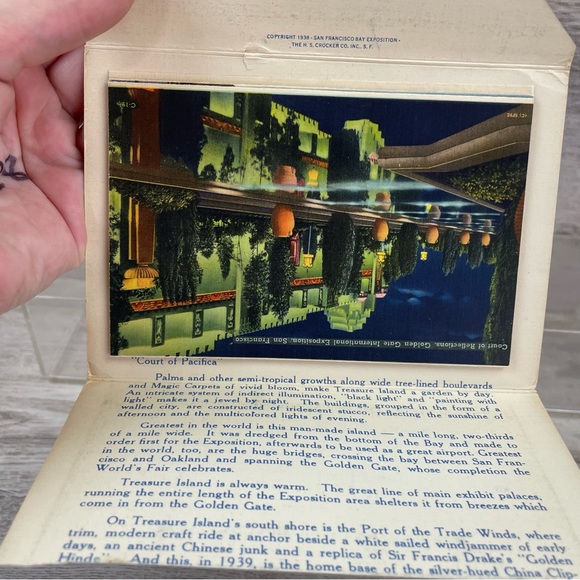 COPYRIGHT 1939 - SAN FRANCISCO BAY EXPOSITION -
THE H. S. CROCKER CO. INC., S. F.
Court of Reflections, Golden Gate International Exposition, San Francisco
"Court of Pacifica"
Palms and other semi-tropical growths along wide tree-lined boulevards
and Magic Carpets of vivid bloom, make Treasure Island a garden by day.
An intricate system of indirect illumination, "black light" and "painting with
light" makes it a jewel by night. The buildings, grouped in the form of a
walled city, are constructed of iridescent stucco, reflecting the sunshine of
afternoon and the multicolored lights of evening.
Greatest in the world is this man-made island — a mile long, two-thirds
of a mile wide. It was dredged from the bottom of the Bay and made to
order first for the Exposition, afterwards to be used as a great airport. Greatest
in the world, too, are the huge bridges, crossing the bay between San Fran-
cisco and Oakland and spanning the Golden Gate, whose completion the
World's Fair celebrates.
Treasure Island is always warm. The great line of main exhibit palaces,
running the entire length of the Exposition area shelters it from breezes which
come in from the Golden Gate.
On Treasure Island's south shore is the Port of the Trade Winds, where
trim, modern craft ride at anchor beside a white sailed windjammer of early
days, an ancient Chinese junk and a replica of Sir Francis Drake's "Golden
Hinde". And this, in 1939, is the home base of the silver-hued China Clip-